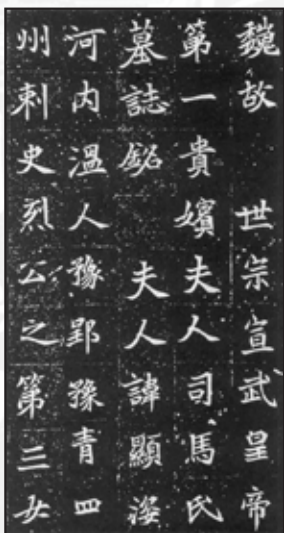 魏故 世宗宣武皇帝
第一貴嬪夫人司馬氏
墓誌銘 夫人諱顯姿
河内溫人豫郢豫青四
州刺史烈公之第三女